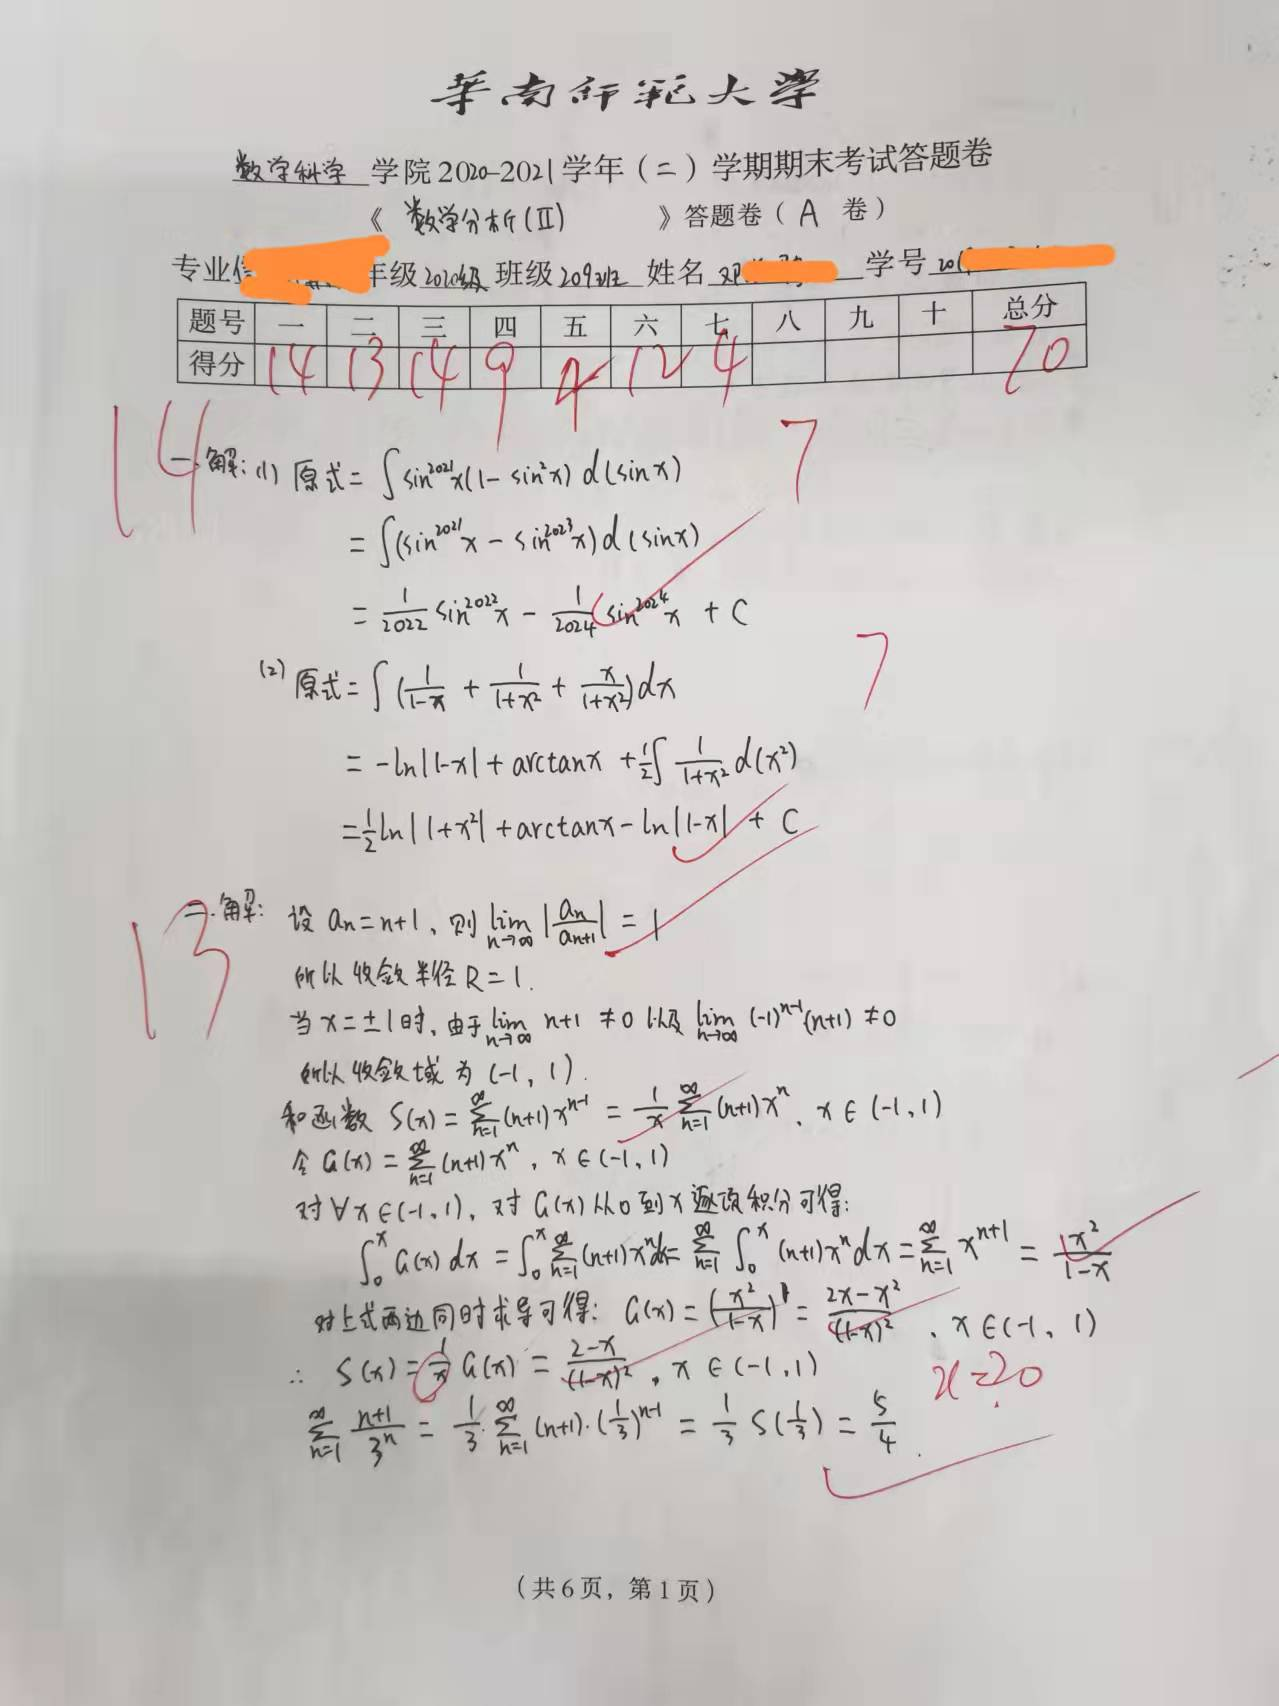 華南师范大学
数学科学 学院2020-2021学年(二)学期期末考试答题卷
《 数学分析(II) 》答题卷(A 卷)
专业 年级2020级 班级209班 姓名 邓 学号 201
题号 一 二 三 四 五 六 七 八 九 十 总分
得分 14 13 14 9 4 12 4 70
14
一.解:(1) 原式=∫sin²⁰²¹x(1-sin²x)d(sinx) 7
=∫(sin²⁰²¹x-sin²⁰²³x)d(sinx)
=1/2022 sin²⁰²²x-1/2024 sin²⁰²⁴x+C
(2) 原式=∫(1/(1-x)+1/(1+x²)+x/(1+x²))dx 7
=-ln|1-x|+arctanx+1/2∫1/(1+x²) d(x²)
=1/2 ln|1+x²|+arctanx-ln|1-x|+C
13
二.解: 设 aₙ=n+1, 则 lim n→∞ |aₙ/aₙ₊₁|=1
所以收敛半径R=1.
当x=±1时,由于 lim n→∞ n+1≠0 以及 lim n→∞ (-1)ⁿ⁻¹(n+1)≠0
所以收敛域为(-1,1).
和函数 S(x)=∞∑n=1 (n+1)xⁿ⁻¹=1/x ∞∑n=1 (n+1)xⁿ, x∈(-1,1)
令G(x)=∞∑n=1 (n+1)xⁿ, x∈(-1,1)
对∀x∈(-1,1), 对G(x)从0到x逐项积分可得:
∫₀ˣ G(x)dx=∫₀ˣ ∞∑n=1 (n+1)xⁿdx=∞∑n=1 ∫₀ˣ (n+1)xⁿdx=∞∑n=1 xⁿ⁺¹=x²/(1-x)
对上式两边同时求导可得: G(x)=(x²/(1-x))'=(2x-x²)/(1-x)², x∈(-1,1)
∴ S(x)=1/x G(x)=(2-x)/(1-x)², x∈(-1,1) x=20
∞∑n=1 (n+1)/3ⁿ=1/3·∞∑n=1 (n+1)·(1/3)ⁿ⁻¹=1/3 S(1/3)=5/4.
(共6页,第1页)